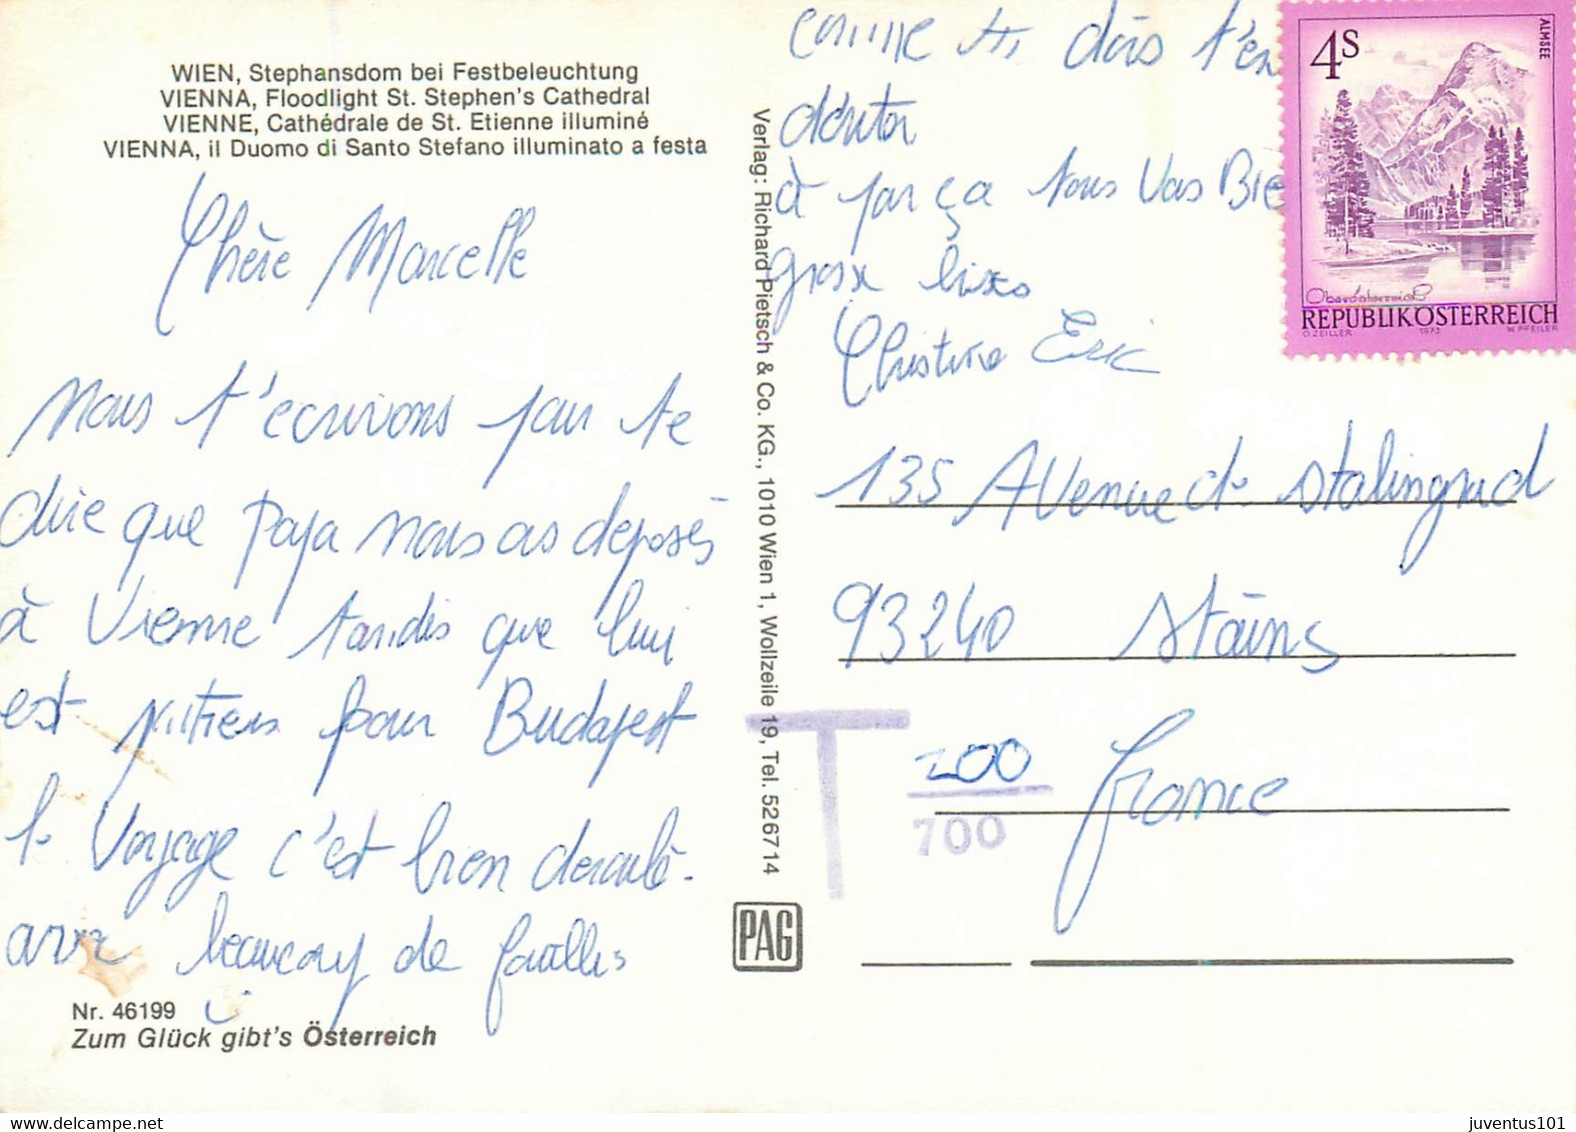 WIEN, Stephansdom bei Festbeleuchtung
VIENNA, Floodlight St. Stephen's Cathedral
VIENNE, Cathédrale de St. Etienne illuminé
VIENNA, il Duomo di Santo Stefano illuminato a festa
Chère Marcelle
Nous t'écrivons pour te
dire que Papa nous as deposés
à Vienne tandis que lui
est pour Budapest
le Voyage c'est bien deroulé.
avec beaucoup de
Nr. 46199
Zum Glück gibt's Österreich
Verlag: Richard Pietsch & Co. KG., 1010 Wien 1, Wollzeile 19, Tel. 526714
PAG
comme tu dois t'en
douter
à par ça tous Vas Bie
gross bises
Christine Eric
4S
ALMSEE
Oberösterreich
REPUBLIK ÖSTERREICH
O. ZEILLER 1973 W. PFEILER
135 Avenue de Stalingrad
93240 Stains
France
T
200
700
juventus101